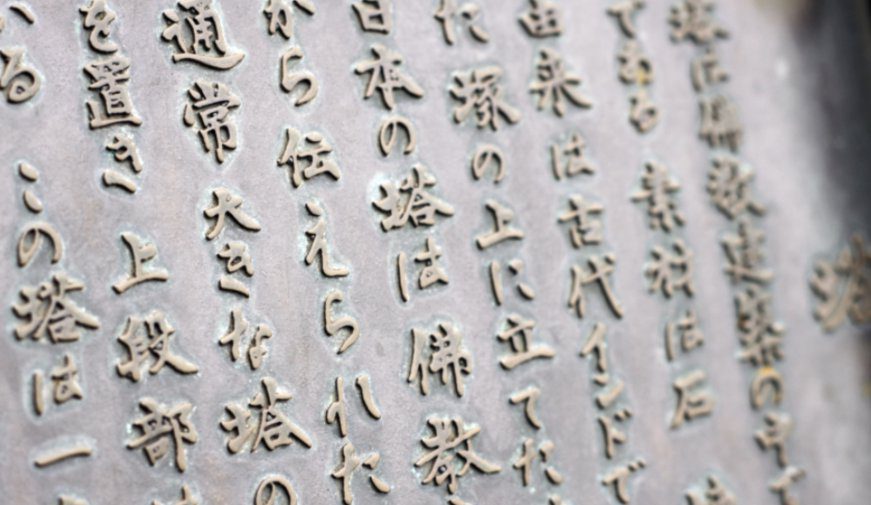 塔
塔は佛教建築の中で
である 素材は石
由来は古代インドで
た塚の上に立てた
日本の塔は佛教
から伝えられた
通常大きな塔の
を置き 上段部
いる この塔は一